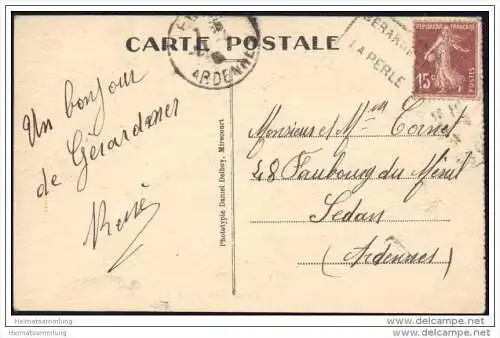 CARTE POSTALE
ARDENNES
GÉRARDMER
LA PERLE
REPUBLIQUE FRANÇAISE
15c
POSTES
Un bonjour
de Gérardmer
René
Phototypie Daniel Delboy, Mirecourt
Monsieur et Mme Cornet
48 Faubourg du Ménil
Sedan
(Ardennes)
Heimatsammlung
http://www.heimatsammlung.de
Heimatsammlung
http://www.heimatsammlung.de